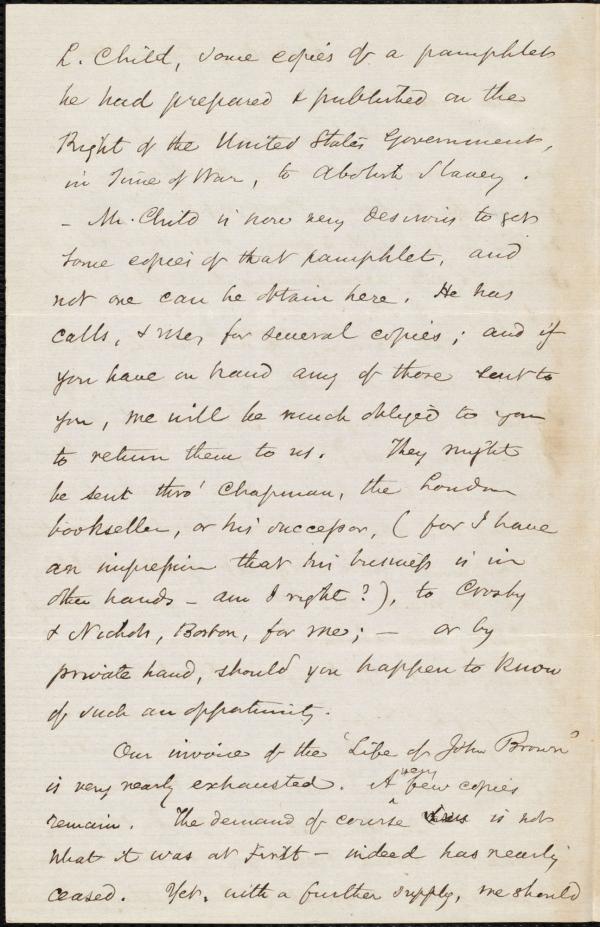 L. Child, some copies of a pamphlet
he had prepared & published on the
Right of the United States Government,
in Time of War, to Abolish Slavery.
- Mr. Child is now very desirous to get
some copies of that pamphlet, and
not one can he obtain here. He has
calls, & uses, for several copies; and if
you have on hand any of those sent to
you, we will be much obliged to you
to return them to us. They might
be sent thro' Chapman, the London
bookseller, or his successor, (for I have
an impression that his business is in
other hands - am I right?), to Crosby
& Nichols, Boston, for me; - or by
private hand, should you happen to know
of such an opportunity.
Our invoice of the 'Life of John Brown'
is very nearly exhausted. A very few copies
remain. The demand of course is not
what it was at first - indeed has nearly
ceased. Yet, with a further supply, we should